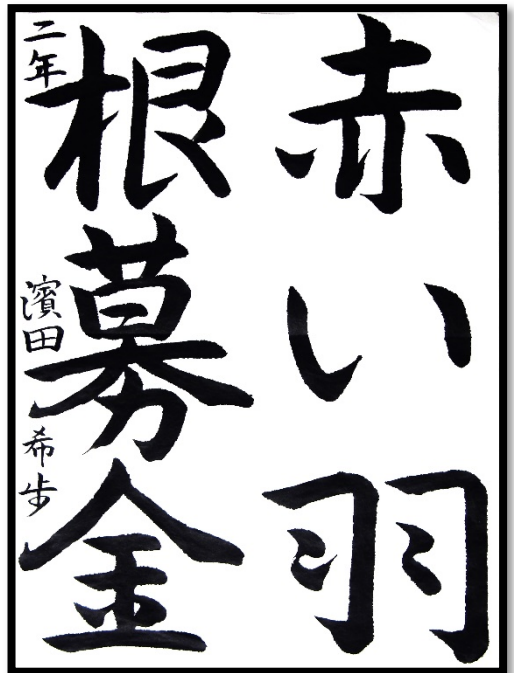 赤い羽
根募金
二年 濱田 希歩